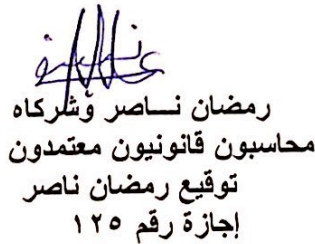 رمضان نـــاصر وشركاه
محاسبون قانونيون معتمدون
توقيع رمضان ناصر
إجازة رقم ١٢٥